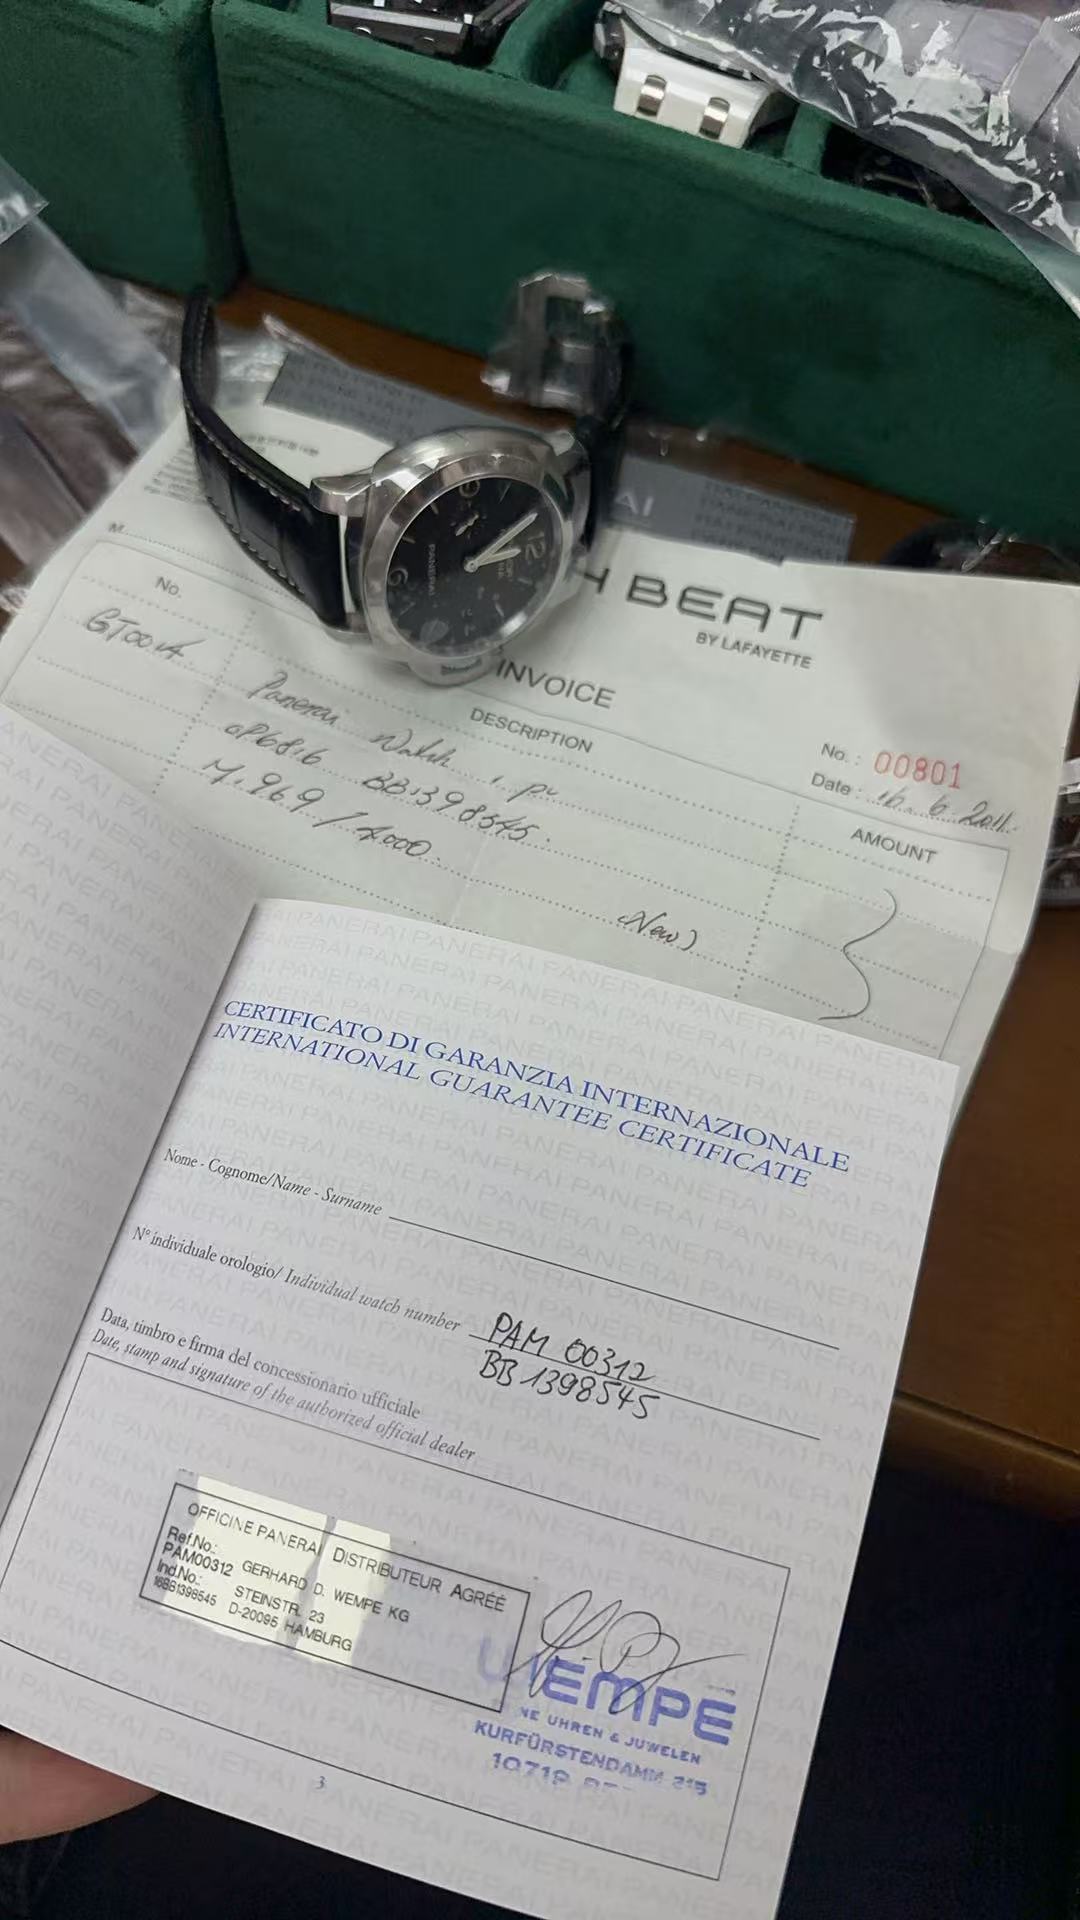 PANERAI
12
BEAT
BY LAFAYETTE
INVOICE
M
No. DESCRIPTION AMOUNT
No.: 00801
Date: 16. 6. 2011.
Panerai Watch 1 pc
OP6816 BB1398545.
M. 969 / 4000.
(New)
CERTIFICATO DI GARANZIA INTERNAZIONALE
INTERNATIONAL GUARANTEE CERTIFICATE
Nome - Cognome/Name - Surname
N° individuale orologio/ Individual watch number PAM 00312
BB 1398545
Data, timbro e firma del concessionario ufficiale
Date, stamp and signature of the authorized official dealer
OFFICINE PANERAI DISTRIBUTEUR AGRÉÉ
Ref.No.:
PAM00312 GERHARD D. WEMPE KG
Ind.No.: STEINSTR. 23
16BB1398545 D-20095 HAMBURG
WEMPE
NE UHREN & JUWELEN
KURFÜRSTENDAMM 215
10719
3